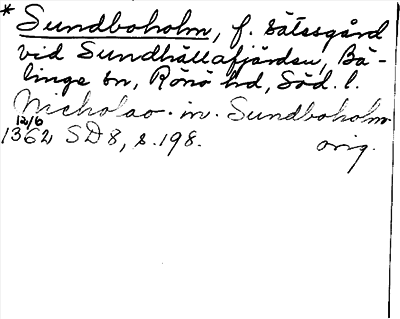 * Sundboholm, f. sätesgård
vid Sundhällafjärden, Bä-
linge sn, Rönö hd, Söd. l.
Nicholao. in. Sundboholm.
12/6
1362 SD 8, s. 198. orig.